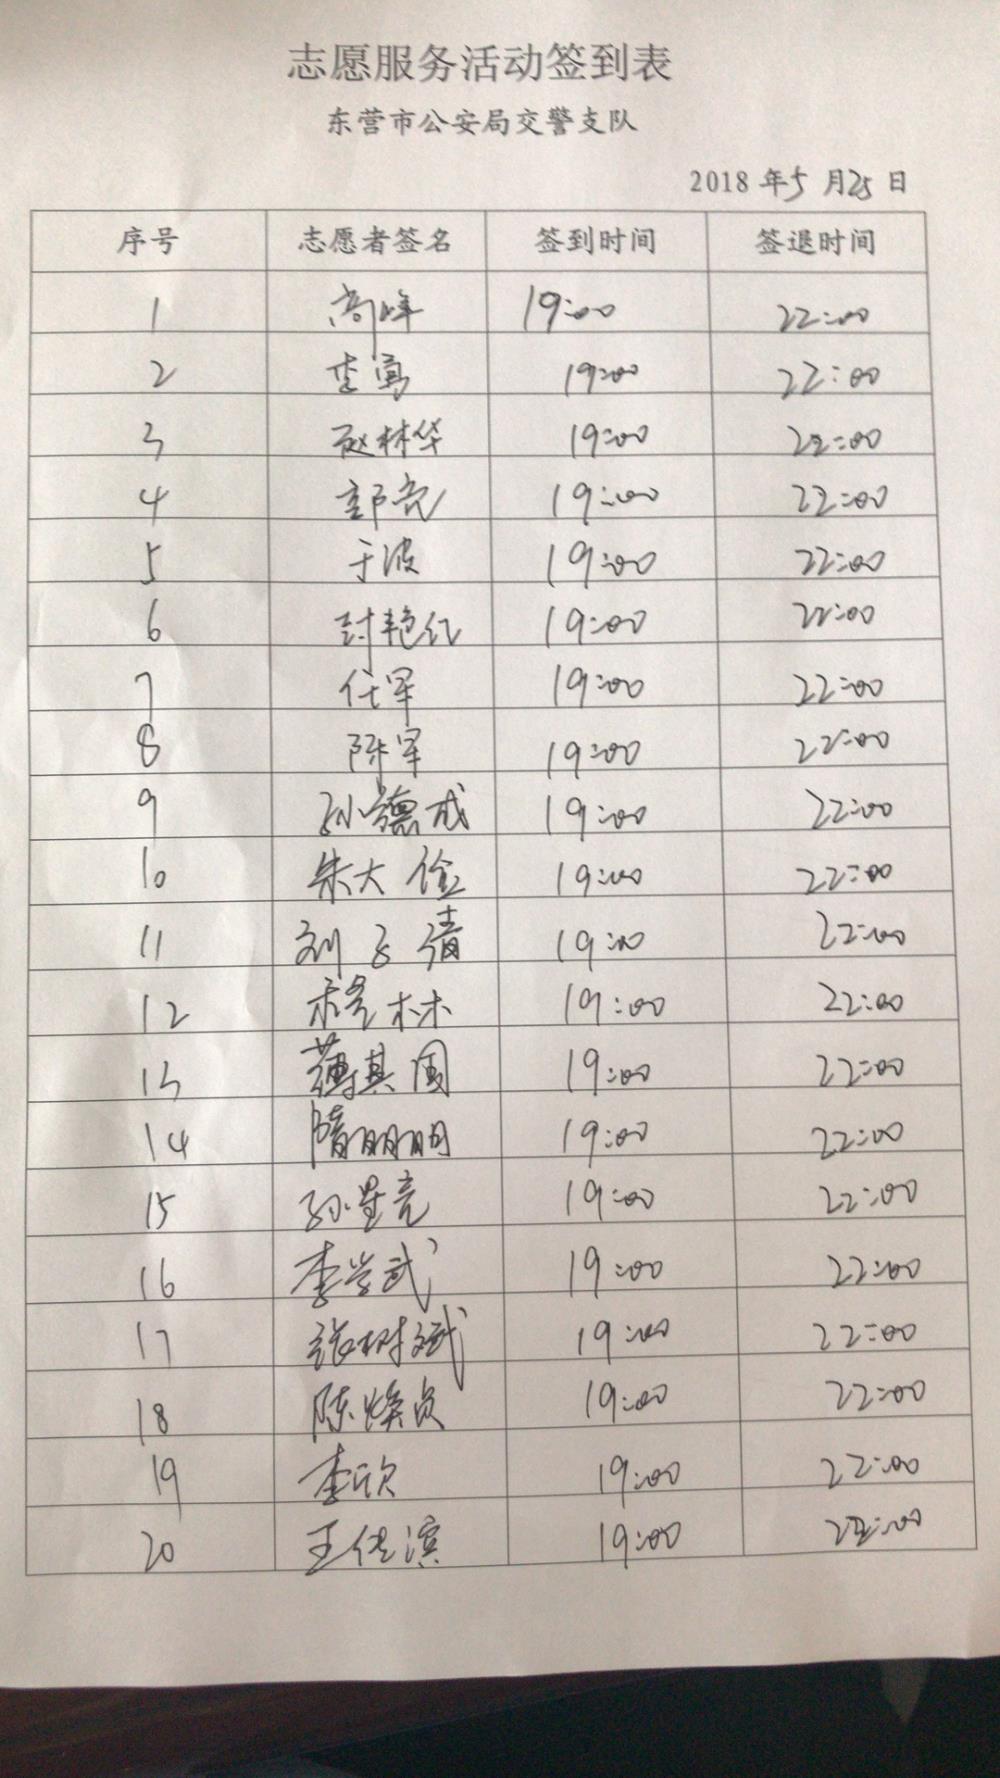 志愿服务活动签到表
东营市公安局交警支队
2018 年 5 月 25 日
序号 志愿者签名 签到时间 签退时间
1 高峰 19:00 22:00
2 李寓 19:00 22:00
3 赵林华 19:00 22:00
4 郭亮 19:00 22:00
5 于波 19:00 22:00
6 封艳红 19:00 22:00
7 任军 19:00 22:00
8 陈军 19:00 22:00
9 孙德成 19:00 22:00
10 朱大俭 19:00 22:00
11 刘子倩 19:00 22:00
12 穆林 19:00 22:00
13 薄其国 19:00 22:00
14 隋明明 19:00 22:00
15 孙星亮 19:00 22:00
16 李学武 19:00 22:00
17 张树斌 19:00 22:00
18 陈焕贞 19:00 22:00
19 李欣 19:00 22:00
20 王传滨 19:00 22:00